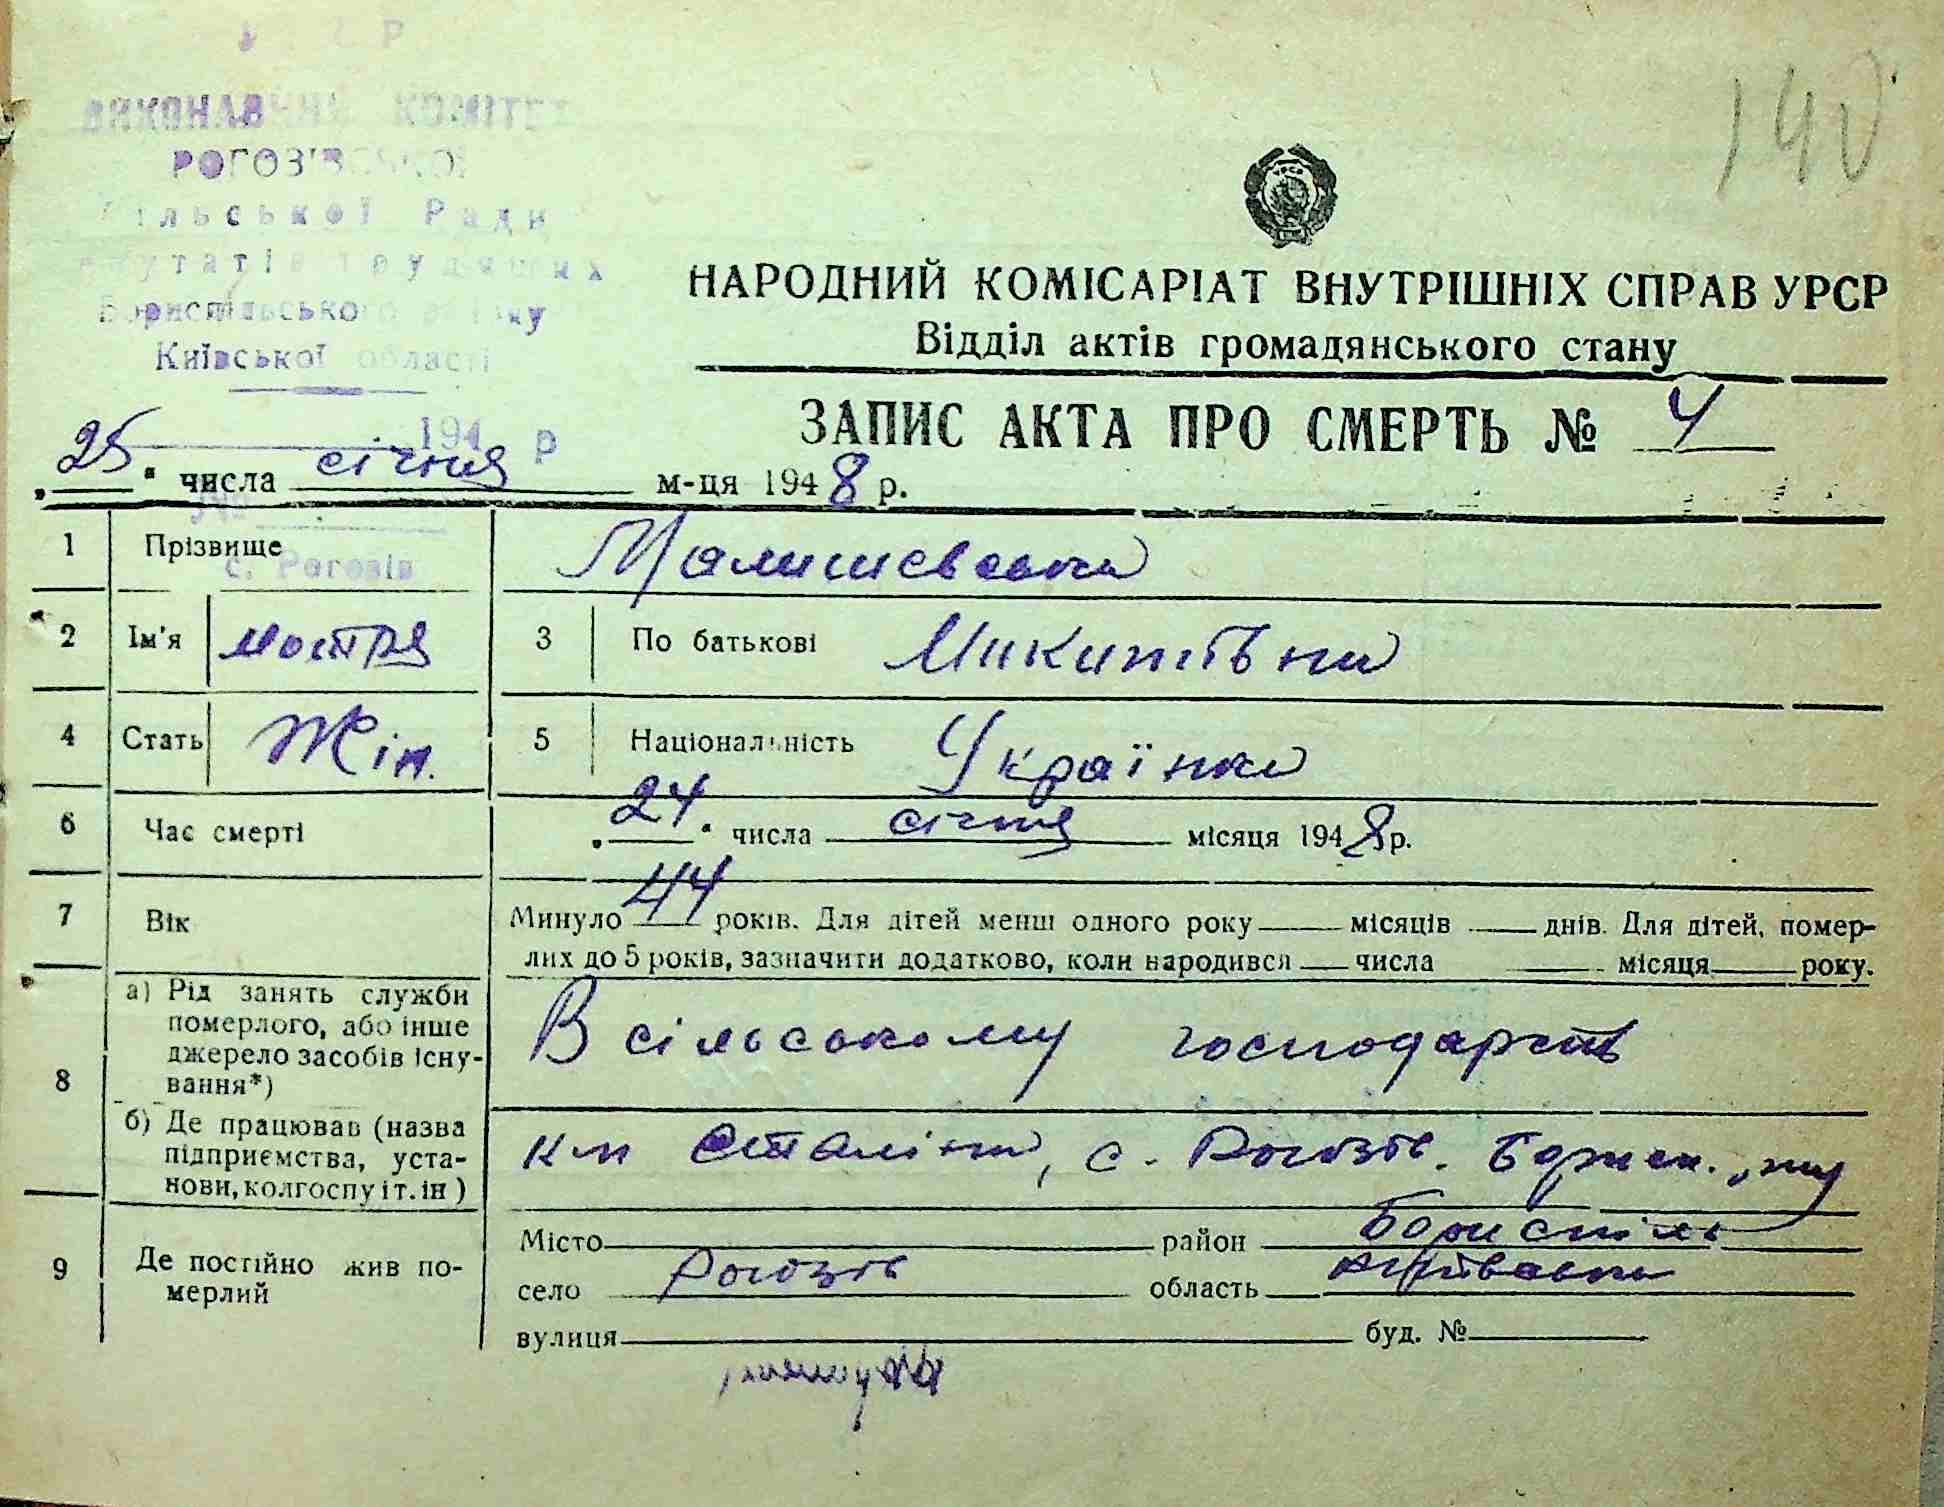 Р
ВИКОНАВЧИЙ КОМІТЕТ
РОГОЗ'ВСЬКОЇ
Сільської Ради
депутатів трудящих
Бориспільського району
Київської області
194 р
№
с. Рогозів
140
УРСР
НАРОДНИЙ КОМІСАРІАТ ВНУТРІШНІХ СПРАВ УРСР
Відділ актів громадянського стану
ЗАПИС АКТА ПРО СМЕРТЬ № 4
„25" числа січня м-ця 1948 р.
1 Прізвище Малишевська
2 Ім'я 3 По батькові Микитівна
4 Стать Жін. 5 Національність Українка
6 Час смерті „24" числа січня місяця 1948 р.
7 Вік Минуло 44 років. Для дітей менш одного року місяців днів. Для дітей, помер-
лих до 5 років, зазначити додатково, коли народився числа місяця року.
8 а) Рід занять служби
померлого, або інше
джерело засобів існу-
вання*)
В сільському господарстві
б) Де працював (назва
підприємства, уста-
нови, колгоспу і т. ін)
к-п Сталіна, с. Рогозів. Борисп.
9 Де постійно жив по-
мерлий
Місто район Бориспіль
село Рогозів область Київська
вулиця буд. №